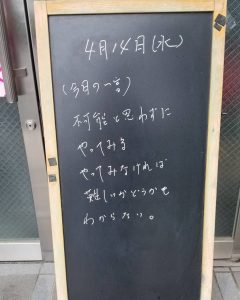 4月14日(水)
(今日の一言)
不可能と思わずに
やってみる
やってみなければ
難しいかどうかも
わからない。